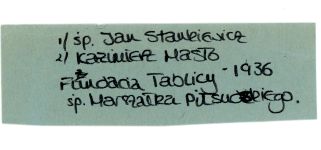 1/ śp. Jan Stankiewicz
2/ Kazimierz Masło
Fundacja Tablicy - 1936
śp. Marszałka Piłsudskiego.